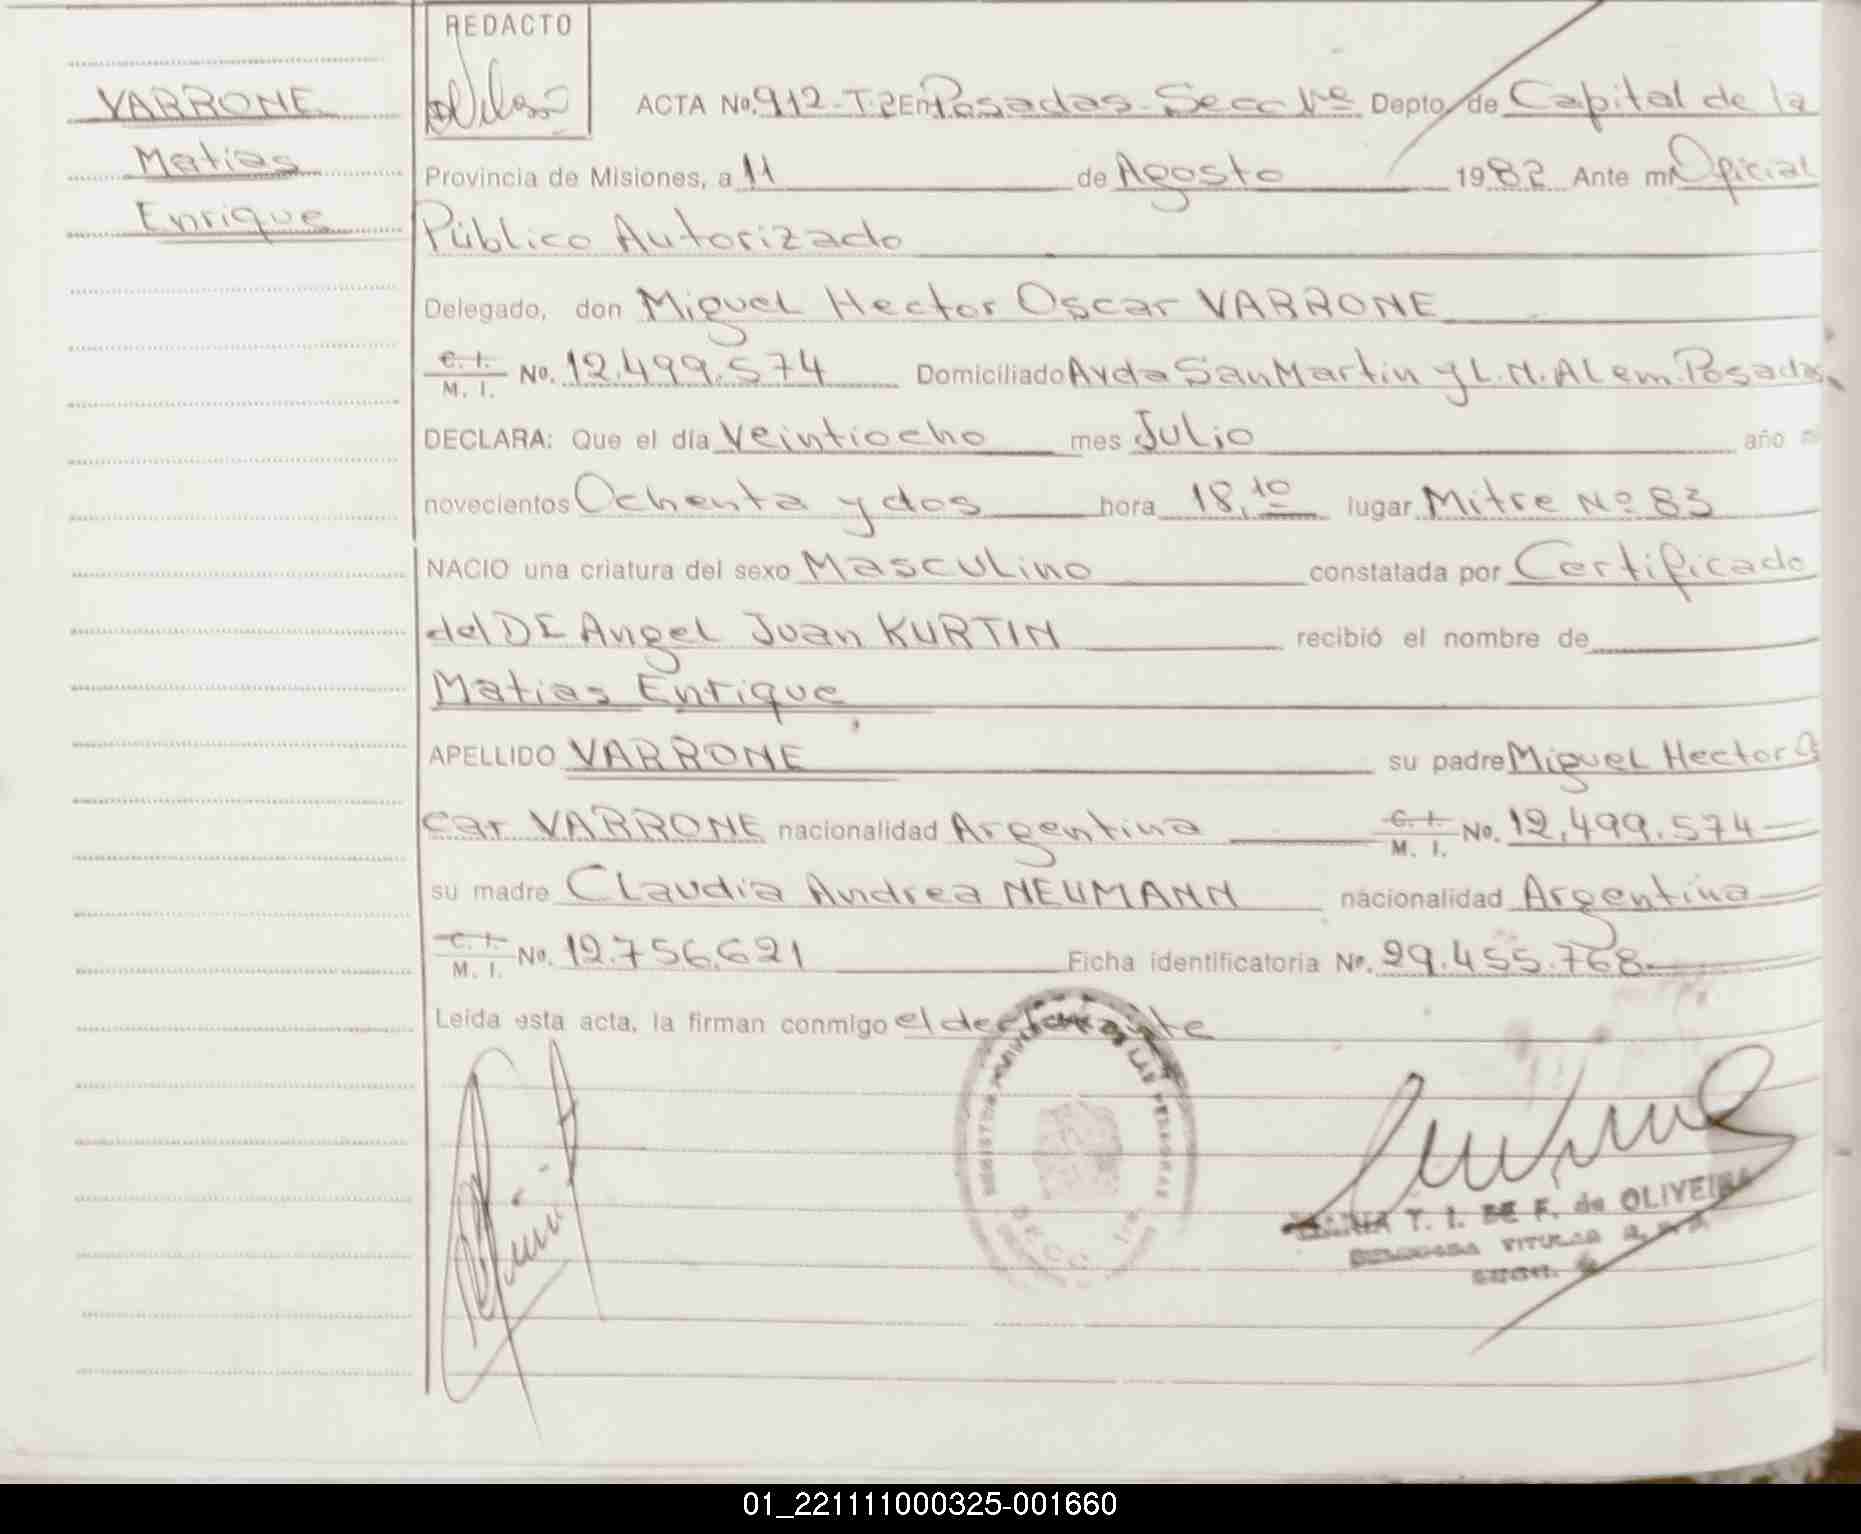 REDACTO
VARRONE
Matias
Enrique
ACTA No. 912-T.2 En Posadas-Secc 1ra Depto. de Capital de la
Provincia de Misiones, a 11 de Agosto 1982 Ante mí Oficial
Público Autorizado
Delegado, don Miguel Hector Oscar VARRONE
C. I. M. I. No. 12.499.574 Domiciliado Avda San Martin y L. N. Alem. Posadas.
DECLARA: Que el día veintiocho mes Julio año
novecientos Ochenta y dos hora 18,10 lugar Mitre Nº 83
NACIO una criatura del sexo Masculino constatada por Certificado
del Dr Angel Juan KURTIN recibió el nombre de
Matias Enrique
APELLIDO VARRONE su padre Miguel Hector Os
car VARRONE nacionalidad Argentina C. I. M. I. No. 12.499.574
su madre Claudia Andrea NEUMANN nacionalidad Argentina
C. I. M. I. No. 12.756.621 Ficha identificatoria No. 29.455.768
Leída esta acta, la firman conmigo el declarante
REGISTRO PROVINCIAL DE LAS PERSONAS
SECC. 1ra
T. I. DE F. de OLIVEIRA
TITULAR
01_221111000325-001660